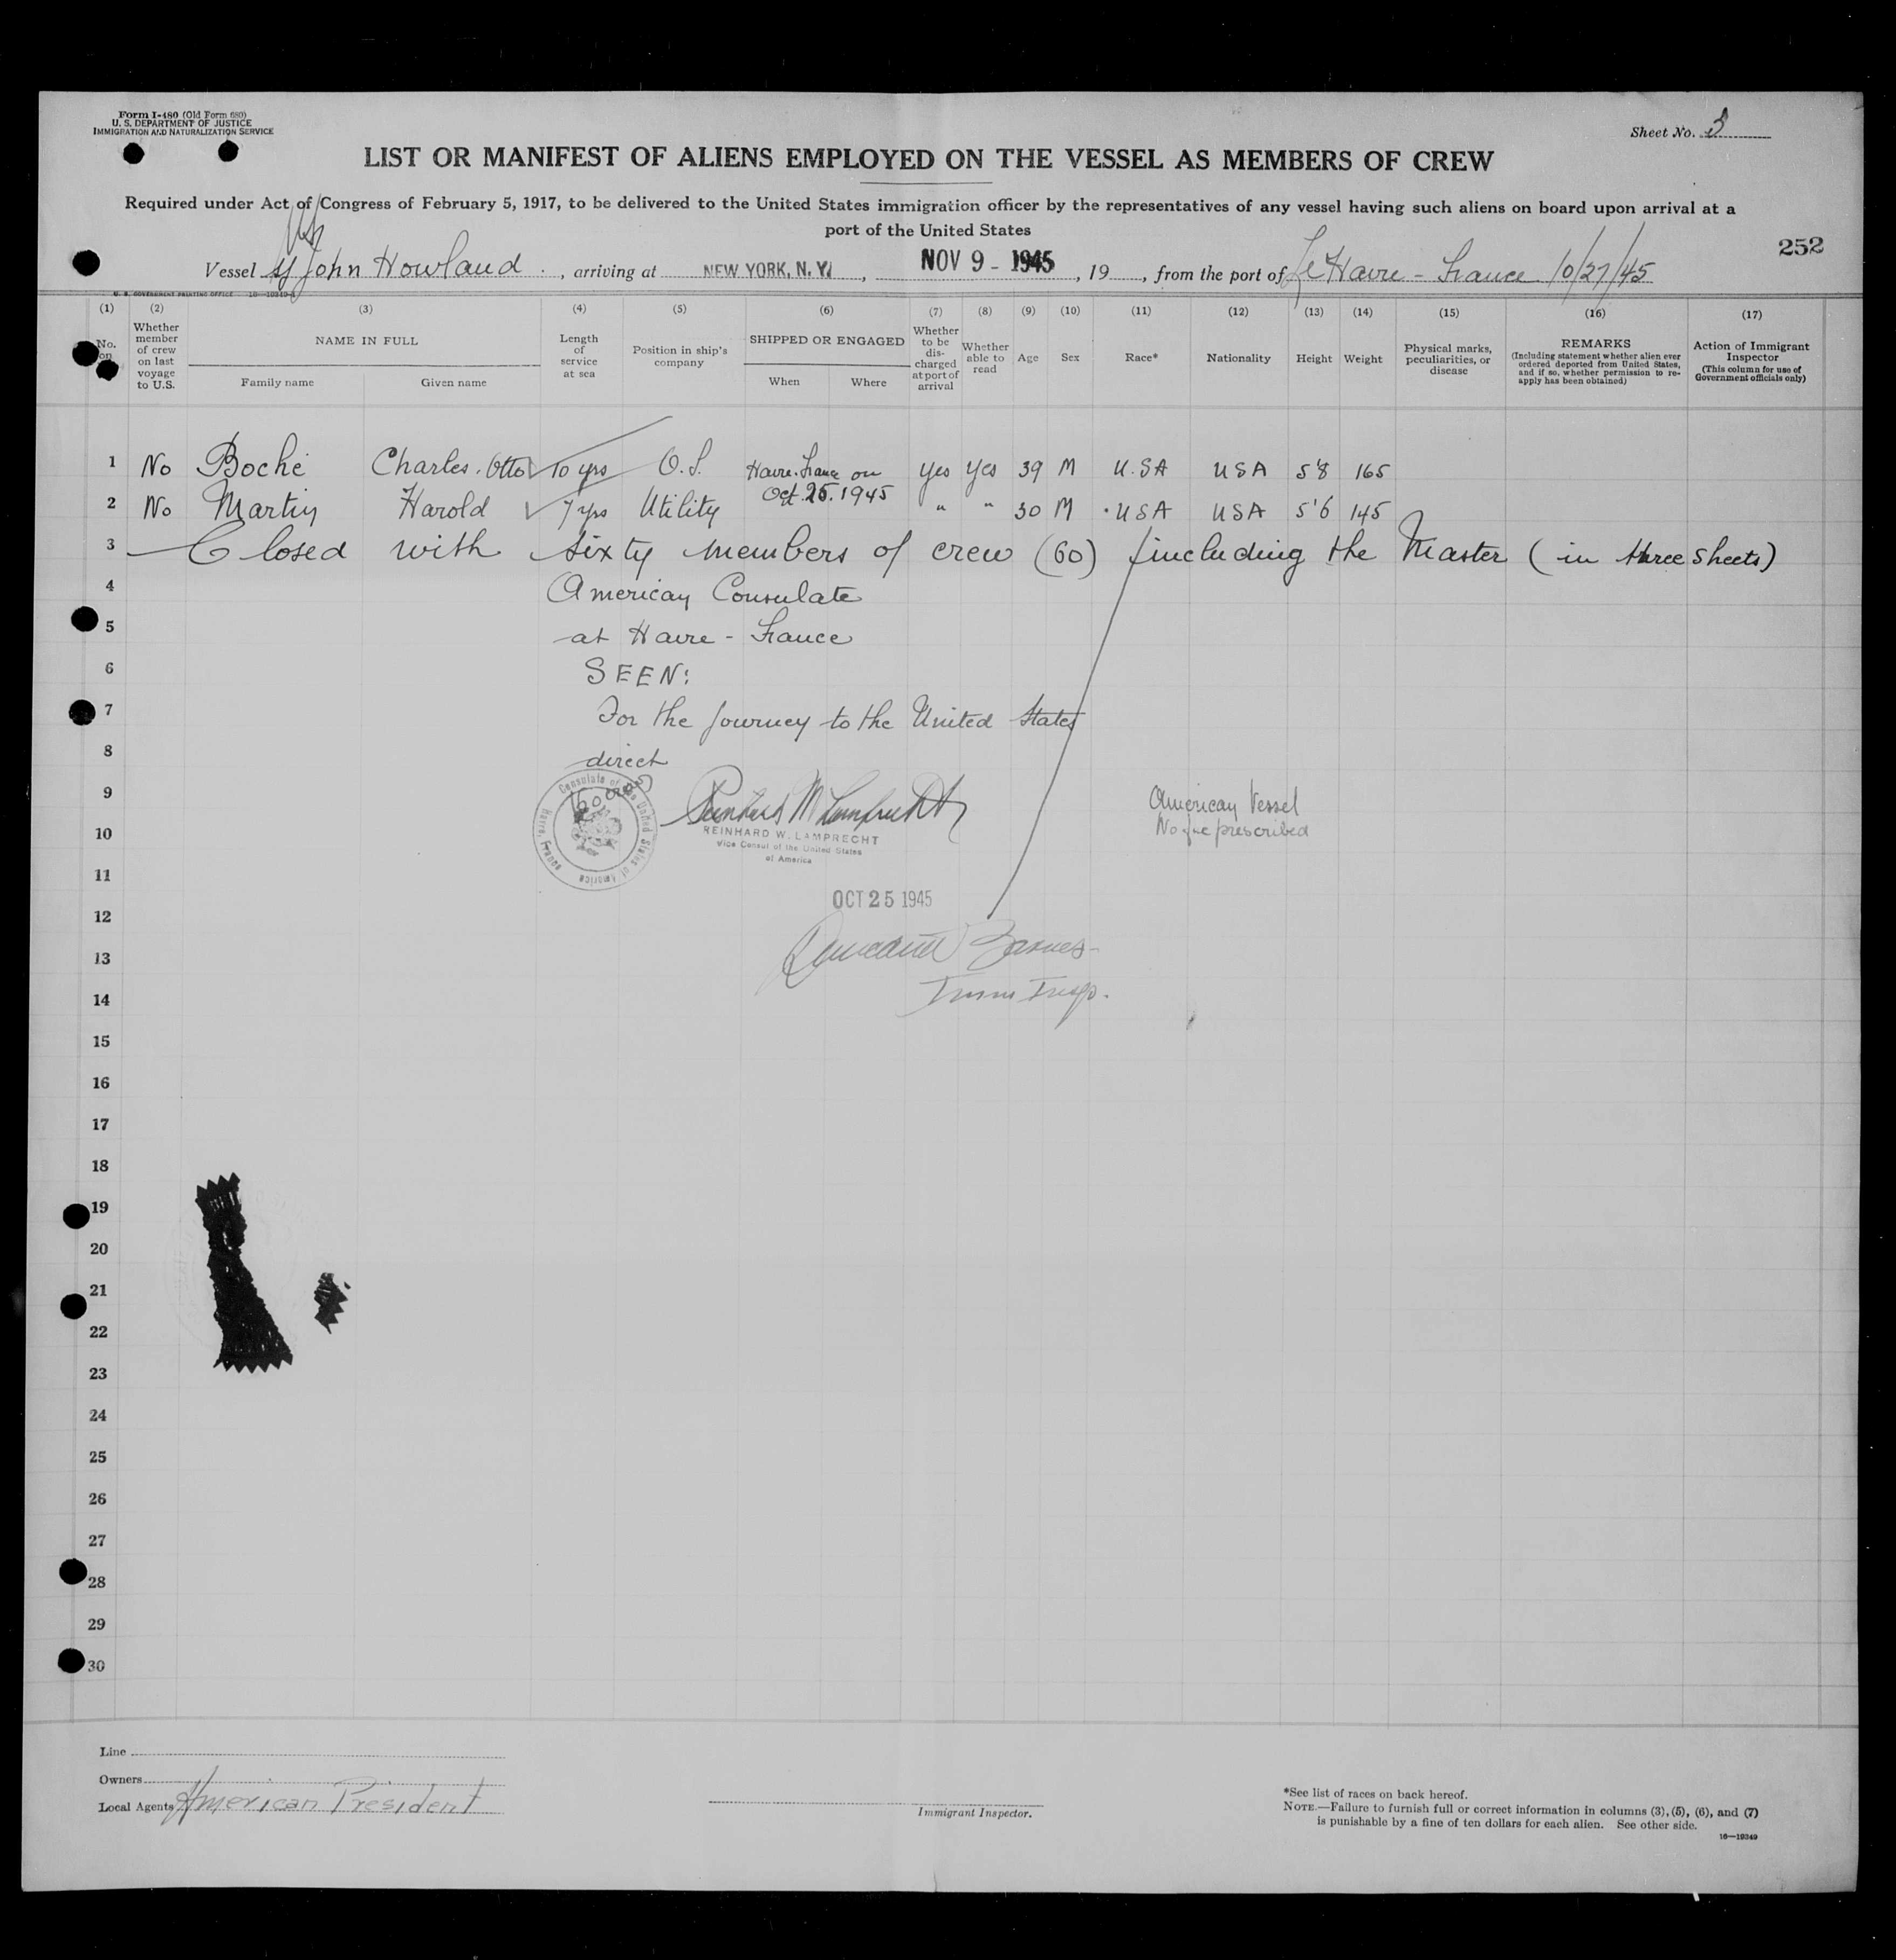 Form I-480 (Old Form 680)
U. S. DEPARTMENT OF JUSTICE
IMMIGRATION AND NATURALIZATION SERVICE
Sheet No. 3
LIST OR MANIFEST OF ALIENS EMPLOYED ON THE VESSEL AS MEMBERS OF CREW
Required under Act of Congress of February 5, 1917, to be delivered to the United States immigration officer by the representatives of any vessel having such aliens on board upon arrival at a
port of the United States
252
Vessel John Howland, arriving at NEW YORK, N. Y., NOV 9 - 1945, 19, from the port of Le Havre - France 10/27/45
U. S. GOVERNMENT PRINTING OFFICE
(1) (2) (3) (4) (5) (6) (7) (8) (9) (10) (11) (12) (13) (14) (15) (16) (17)
No. on
Whether member of crew on last voyage to U.S.
NAME IN FULL
Family name Given name
Length of service at sea
Position in ship's company
SHIPPED OR ENGAGED
When Where
Whether to be discharged at port of arrival
Whether able to read
Age
Sex
Race*
Nationality
Height
Weight
Physical marks, peculiarities, or disease
REMARKS
(Including statement whether alien ever ordered deported from United States, and if so, whether permission to reapply has been obtained)
Action of Immigrant Inspector
(This column for use of Government officials only)
1 No Boché Charles. Otto 10 yrs O.S. Havre. France on yes yes 39 M U.SA USA 5'8 165
Oct. 25. 1945
2 No Martin Harold 7 yrs Utility " " 30 M USA USA 5'6 145
3 Closed with sixty members of crew (60) including the Master (in three sheets)
4 American Consulate
5 at Havre - France
6 SEEN:
7 For the journey to the United States
8 direct
9
Consulate of the United States of America Havre, France
REINHARD W. LAMPRECHT
Vice Consul of the United States
of America
American Vessel
No fee prescribed
10
11
OCT 25 1945
12
13
Barnes
14
15
16
17
18
19
20
21
22
23
24
25
26
27
28
29
30
Line
Owners
Local Agents American President
Immigrant Inspector.
*See list of races on back hereof.
NOTE.—Failure to furnish full or correct information in columns (3), (5), (6), and (7)
is punishable by a fine of ten dollars for each alien. See other side.
16—19349